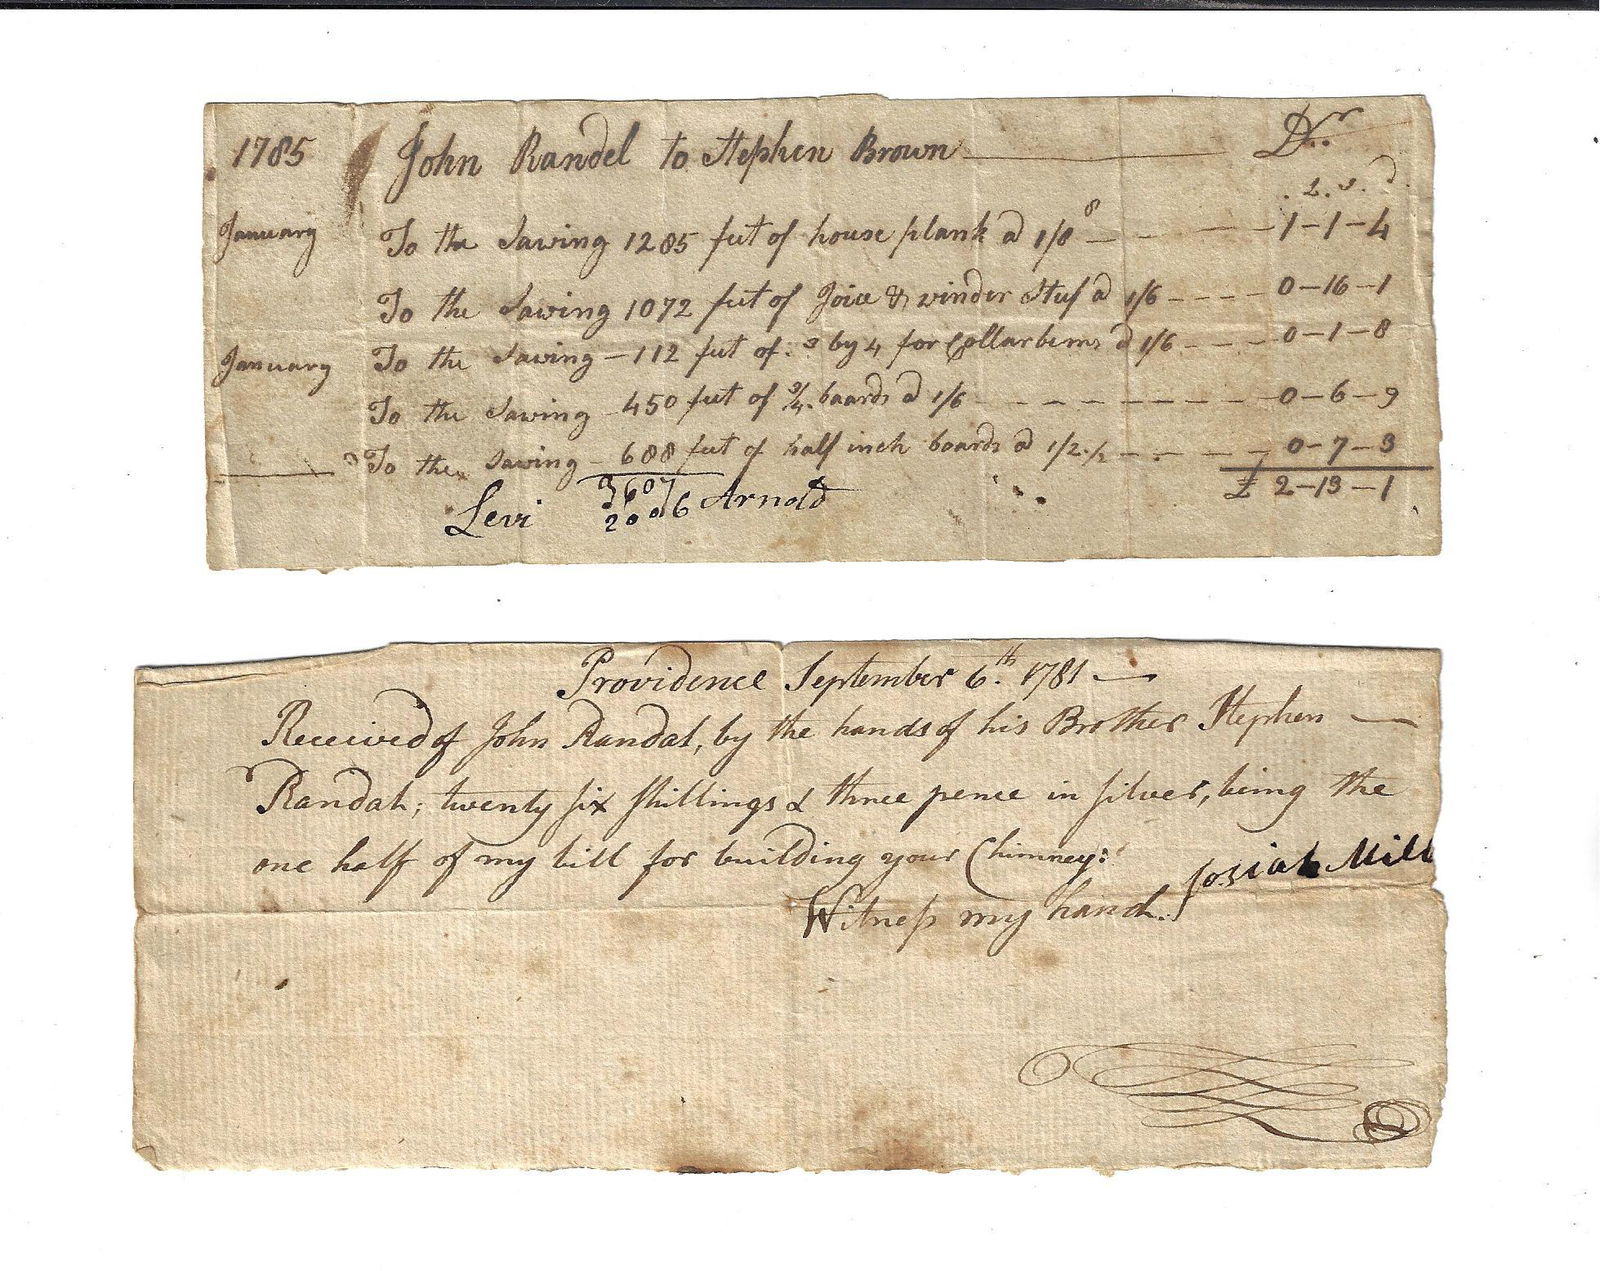 1785 John Randel to Stephen Brown Dr
L. s. d
January To the Sawing 1285 feet of house plank a 1/8 1-1-4
To the Sawing 1072 feet of Joice & winder Stuf a 1/6 0-16-1
January To the Sawing 112 feet of by 4 for Collarbems a 1/6 0-1-8
To the Sawing 450 feet of 3/4 boards a 1/6 0-6-9
To the Sawing 688 feet of half inch boards a 1/2 1/2 0-7-3
3607 £ 2-13-1
Levi Arnold
Providence September 6th. 1781
Received of John Randal, by the hands of his Brother Stephen
Randal; twenty six shillings & three pence in silver, being the
one half of my bill for building your Chimney:
Witness my hand. Josiah Mill